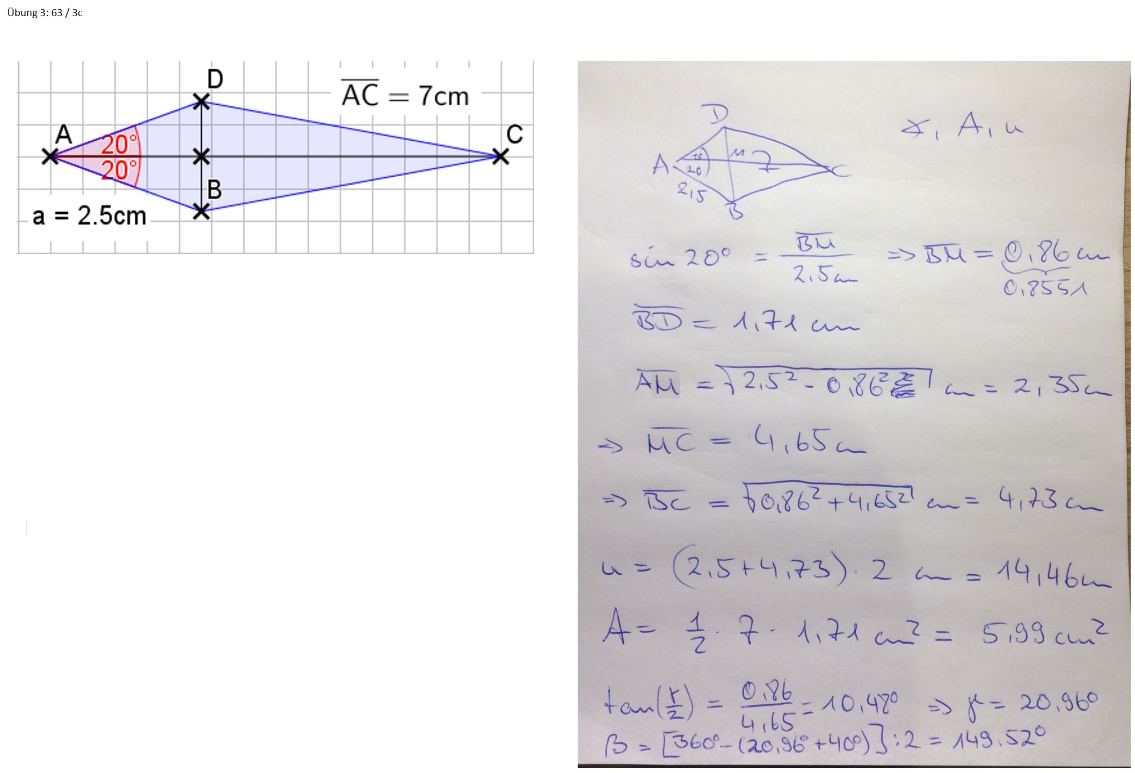 Übung 3: 63 / 3c
D
AC = 7cm
A
20°
20°
C
B
a = 2.5cm
D
∡, A, u
A
20
M
7
C
2,5
B
sin 20° = BM / 2,5cm ⇒ BM = 0,86 cm
0,8551
BD = 1,71 cm
AM = √2,5² - 0,86² cm = 2,35cm
⇒ MC = 4,65cm
⇒ BC = √0,86² + 4,65² cm = 4,73cm
u = (2,5+4,73) · 2 cm = 14,46cm
A = 1/2 · 7 · 1,71 cm² = 5,99 cm²
tan(γ/2) = 0,86 / 4,65 = 10,48° ⇒ γ = 20,96°
β = [360° - (20,96° + 40°)] : 2 = 149,52°